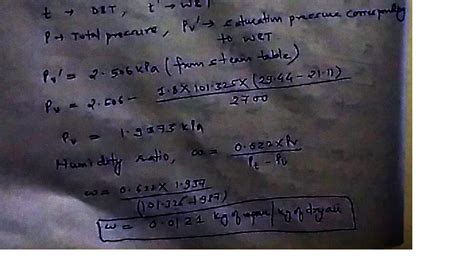 t → DBT, t' → WBT
P → Total pressure, Pv' → saturation pressure corresponding
to WBT
Pv' = 2.506 kPa (from steam table)
Pv = 2.506 - 1.8 × 101.325 × (29.44 - 21.11) / 2700
Pv = 1.9373 kPa
Humidity ratio, ω = 0.622 × Pv / Pt - Pv
ω = 0.622 × 1.937 / (101.325 - 1.937)
ω = 0.0121 kg of vapour / kg of dry air